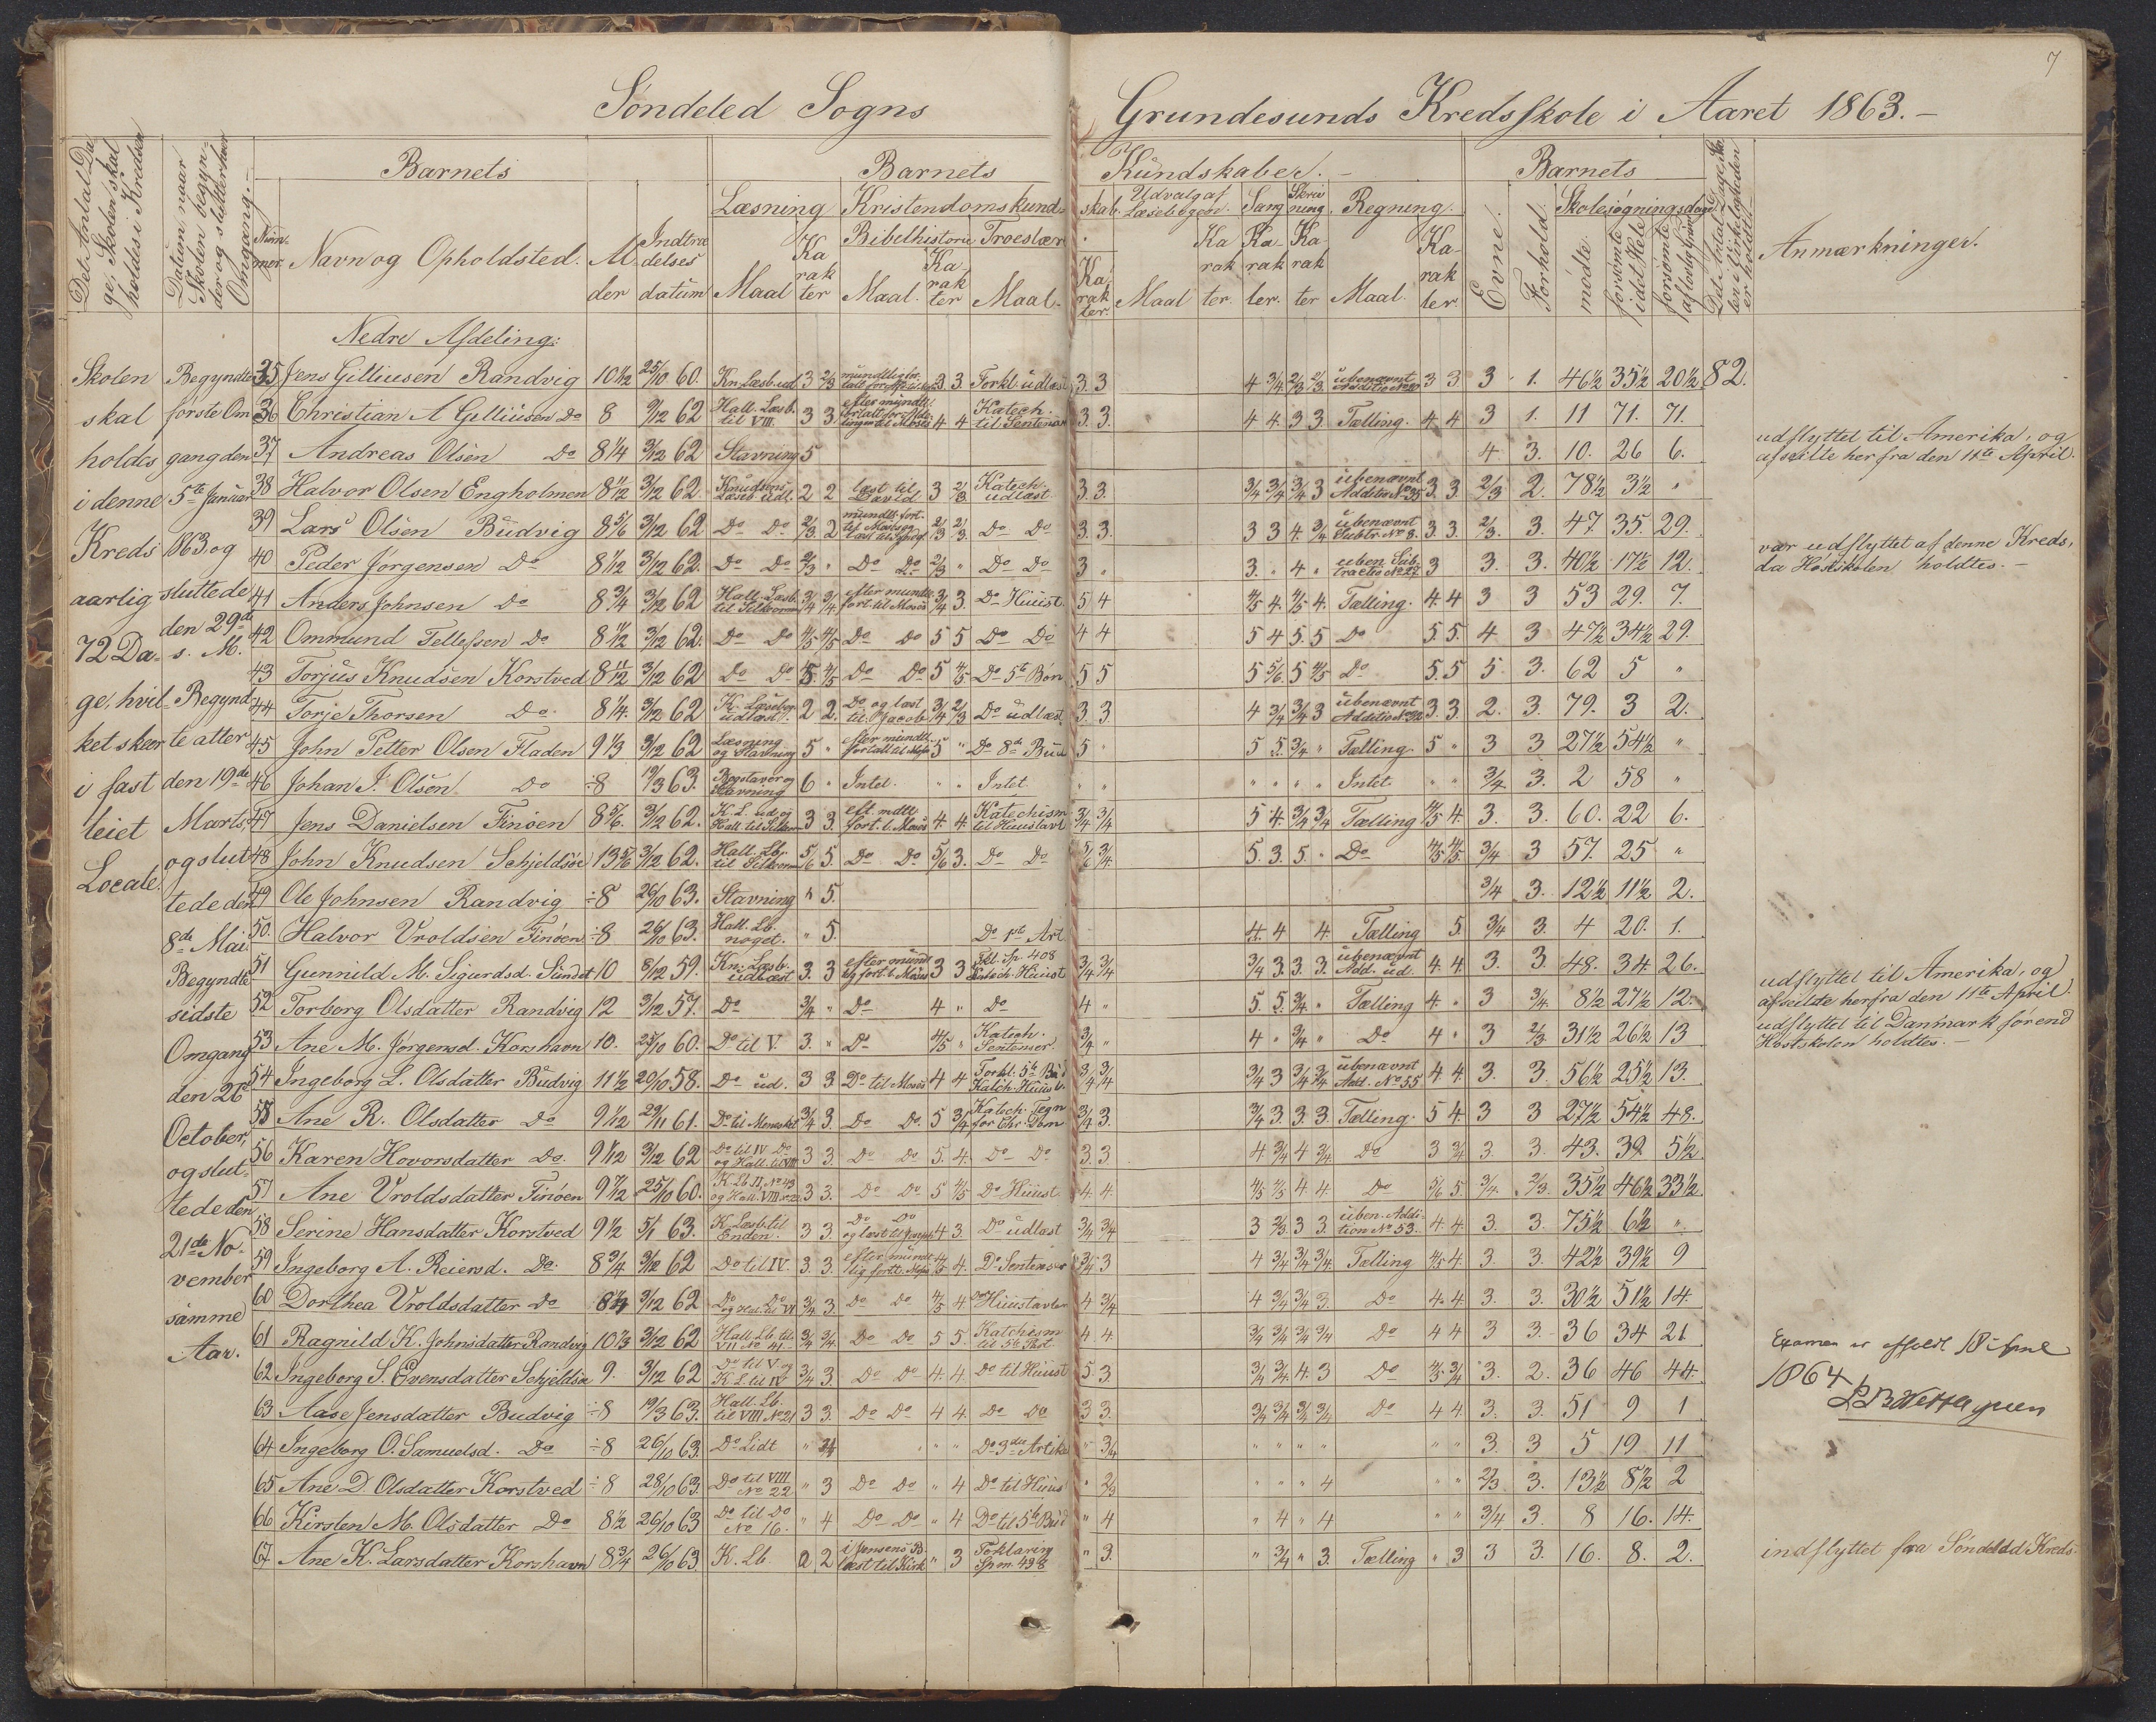 7
Søndeled Sogns Grundesunds Kredsskole i Aaret 1863.-
Det Antal Dage, Skolen skal holdes i Kredsen
Datum naar Skolen begynder og slutter hver Omgang.-
Barnets
Nummer
Navn og Opholdsted.
Alder
Indtrædelses datum
Barnets Kundskaber.-
Læsning
Maal
Karakter
Kristendomskundskab.
Bibelhistorie
Maal.
Karakter
Troeslære
Maal.
Karakter.
Udvalg af Læsebogen.
Maal
Karakter.
Sang
Karakter.
Skrivning.
Karakter
Regning.
Maal.
Karakter.
Barnets
Evne.
Forhold.
Skolesøgningsdage
mødte.
forsømte i det Hele
forsømte af lovlig Grund
Det Antal Dage Skolen i Virkeligheden er holdt.-
Anmærkninger.
Skolen
skal
holdes
i denne
Kreds
aarlig
72 Da-
ge, hvil-
ket skeer
i fast
leiet
Locale.
Begyndte
første Om
gang den
5te Januar
1863 og
sluttede
den 29de
s. M.
Begynd-
te atter
den 19de
Marts,
og slut-
tede den
8de Mai
Begyndte
sidste
Omgang
den 26
October,
og slut-
tede den
21de No-
vember
samme
Aar.
Nedre Afdeling:
35 Jens Gilliusen Randvig 10 1/2 25/10 60. Kn. Læsb. ud 3 2/3 3 3 Forkl. udlæst 3 3 4 3/4 2/3 2/3 ubenævnt 3 3 3 1. 46 1/2 35 1/2 20 1/2 82.
36 Christian A Gelliusen Do 8 9/12 62 Hall. Læsb. til VIII. 3 3. 4 4 Katech. til Sentenser 3. 3. 4 4. 3 3. Tælling. 4 4 3 1. 11 71. 71.
37 Andreas Olsen Do 8 1/4 3/12 62 Stavning 5 4 3. 10. 26 6. udflyttet til Amerika, og afseilte her fra den 11te April.
38 Halvor Olsen Engholmen 8 1/2 3/12 62. Knudsens Læseb udl. 2 2 læst til David. 3 2/3 Katech. udlæst. 3. 3. 3/4 3/4 3/4 3 ubenævnt Additio No 35 3. 3. 2/3 2. 78 1/2 3 1/2 "
39 Lars Olsen Budvig 8 5/6 3/12 62 Do Do 2/3. 2 2/3 2/3. Do Do 3. 3. 3 3 4. 3/4 ubenævnt Subtr. No 8. 3. 3. 2/3. 3. 47. 35. 29.
40 Peder Jørgensen Do 8 1/2 3/12 62. Do Do 2/3 " Do Do 2/3 " Do Do 3 " 3. " 4 " uben. Subtractio No 27 3 3. 3. 40 1/2 17 1/2 12. var udflyttet af denne Kreds, da Høstskolen holdtes.-
41 Anders Johnsen Do 8 3/4 3/12 62 Hall. Læsb. 3/4 3/4 efter mundtl. fort. til Moses 3/4 3. Do Huust. 5 4 4/5 4. 4/5 4. Tælling. 4. 4 3 3 53 29. 7.
42 Ommund Tellefsen Do 8 1/2 3/12 62. Do Do 4/5 4/5 Do Do 5 5 Do Do 4 4 5 4 5. 5 Do 5. 5. 4. 3 47 1/2 34 1/2 29.
43 Torjus Knudsen Korstved 8 11/12 3/12 62 Do Do 5 4/5 Do Do 5 4/5 Do 5te Bøn 5 5 5 5/6. 5 4/5 Do 5. 5 5. 3. 62 5 "
44 Torje Thorsen Do 8 1/4. 3/12 62 K. Læsebog udlæst. 2 2. Do og læst til Jacob 3/4 2/3 Do udlæst. 3. 3 4 3/4 3/4 3 ubenævnt 3. 3. 2. 3. 79. 3 2.
45 John Petter Olsen Fladen 9 1/3 3/12 62 Læsning og Stavning 5 " 5 " Do 8de Bud 5 " 5 5. 3/4 " Tælling 5 " 3 3 27 1/2 54 1/2 "
46 Johan J. Olsen Do ÷8 19/3 63. Bogstaver og Stavning 6 " Intet. " " Intet " " " " " " Intet " " 3/4 3. 2 58 "
47 Jens Danielsen Finøen 8 5/6. 3/12 62. 3 3. 4. 4. Katechism til Huustavl 3/4 3/4 5 4. 3/4 3/4 Tælling 4/5 4. 3. 3. 60. 22 6.
48 John Knudsen Schjeldsøe 13 5/6 3/12 62. Hall. Lb. 5/6 5. Do Do. 5/6 3. Do Do 5/6 3/4. 5. 3. 5. " Do 4/5 4/5. 3/4 3 57. 25 "
49 Ole Johnsen Randvig ÷8 26/10 63. Stavning " 5. 3/4 3. 12 1/2 11 1/2. 2.
50. Halvor Vroldsen Finøen ÷8 26/10 63. Hall. Lb. noget. " 5. Do 1ste Art 4. 4 4. Tælling 5. 3/4 3. 4 20. 1.
51 Gunnild M. Sigurdsd. Sundet 10 8/12 59. Kn. Læsb. udlæst 3. 3 3 3 3/4 3/4 3/4 3. 3. 3. ubenævnt Add. ud. 4. 4. 3. 3. 48. 34. 26.
52 Torborg Olsdatter Randvig 12 3/12 57. Do 3/4 " Do 4 " Do 4 " 5. 5. 3/4. " Tælling 4. " 3 3/4. 8 1/2 27 1/2 12. udflyttet til Amerika, og afseilte herfra den 11te April.
53 Ane M. Jørgensd. Korshavn 10. 25/10 60. Do til V. 3. " Do 4/5 " Katech. Sentenser. 3/4 " 4 " 3/4 " Do 4 " 3 2/3 31 1/2 26 1/2 13 udflyttet til Danmark førend Høstskolen holdtes.-
54 Ingeborg L. Olsdatter Budvig 11 1/2 20/10 58. Do ud. 3 3 Do til Moses 4 4 3/4 3/4 3/4 3 3/4 3/4 ubenævnt Add. No 55 4 4 3. 3. 56 1/2 25 1/2 13.
55 Ane R. Olsdatter Do 9 1/12 29/11 61. 3/4 3. Do Do. 5 3/4 3/4 3. 3/4 3. 3. 3 Tælling. 5 4. 3 3 27 1/2 54 1/2 48.
56 Karen Hovorsdatter Do. 9 1/12 3/12 62 3 3. Do Do. 5. 4. Do Do 3. 3. 4 3/4 4 3/4. Do 3 3/4 3. 3. 43. 39. 5 1/2
57 Ane Vroldsdatter Finøen 9 7/12 25/10 60. 3 3. Do Do 5 4/5 Do Huust 4. 4. 4/5 4/5 4. 4. Do 5/6 5. 3/4. 2/3. 35 1/2 46 1/2 33 1/2.
58 Serine Hansdatter Korstved 9 1/2 5/1 63. K Læsb til Enden. 3 3 4 3. Do udlæst 3/4 3/4 3 2/3 3 3 uben. Addition No 53. 4. 4. 3. 3. 75 1/2 6 1/2 ".
59 Ingeborg A. Reiersd. Do. 8 3/4 3/12 62 Do til IV. 3. 3. 4/5 4. Do Sentenser 3/4 3 4 3/4 3/4 3/4. Tælling 4/5 4. 3 3. 42 1/2 39 1/2 9
60 Dorthea Vroldsdatter Do 8 1/4 3/12 62 3/4 3. Do Do 4/5 4. Do Huustavlen 4 3/4 4 3/4 3/4 3. Do 4. 4. 3. 3. 30 1/2 51 1/2 14.
61 Ragnild K. Johnsdatter Randvig 10 1/3 3/12 62 3/4 3/4. Do Do 5 5. 4 4 3/4 3/4 3/4 3/4 Do 4 4 3 3.- 36 34 21
62 Ingeborg S. Evensdatter Schjeldsøe 9. 3/12 62 3/4 3. Do Do 4. 4 Do til Huust 5. 3 3/4 3/4. 4. 3 Do 4/5 3/4 3. 2. 36 46 44.
63 Aase Jensdatter Budvig ÷8 19/3 63. Hall. Lb. til VIII No 21 3 3. Do Do 4 4. Do Do 3 3. 3/4 3/4 3/4 3/4 Do 4 4. 3. 3. 51 9 1
64 Ingeborg O. Samuelsd. Do ÷8 26/10 63. Do Lidt " 3/4 " " " Do 3die Artikel " 3/4 " " " " " " 3. 3 5 19. 11
65 Ane D. Olsdatter Korstved ÷8 28/10 63. Do til VIII No 22 " 3 Do Do " 4 Do til Huus " 2/3 " " " 4 " " 2/3 3. 13 1/2 8 1/2 2
66 Kirsten M. Olsdatter Do 8 1/2 26/10 63 Do til Do No 16. " 4 Do Do " 4 Do til 5te Bud " 4 " 4 " 4 " " 3/4 3. 8 16. 14.
67 Ane K. Larsdatter Korshavn 8 3/4 26/10 63 K. Lb. a 2 i Jensens B. læst til Kirk " 3 Foklaring Spm. 498 " 3. " 3/4 " 3. Tælling " 3 3 3. 16. 8. 2. indflyttet fra Søndeled Kreds-
Examen er afholdt 18 April
1864